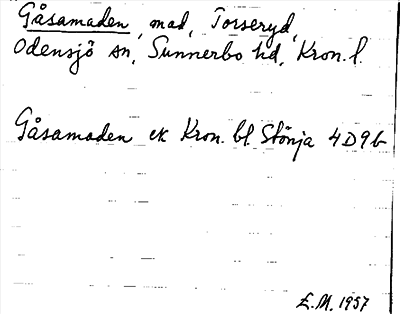 Gåsamaden, mad, Torseryd,
Odensjö sn, Sunnerbo hd, Kron. l.
Gåsamaden ek Kron. bl. Stönja 4D9b
E.M. 1957